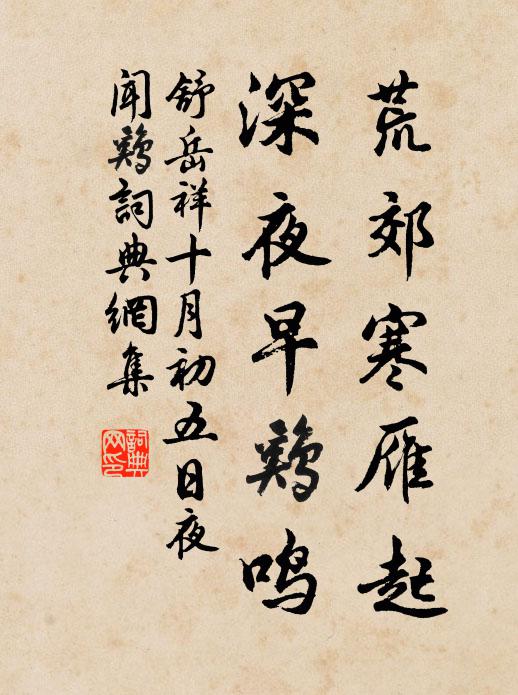 荒郊寒雁起
深夜早鷄鳴
舒岳祥十月初五日夜
聞鷄詞典網集
詞典
网印